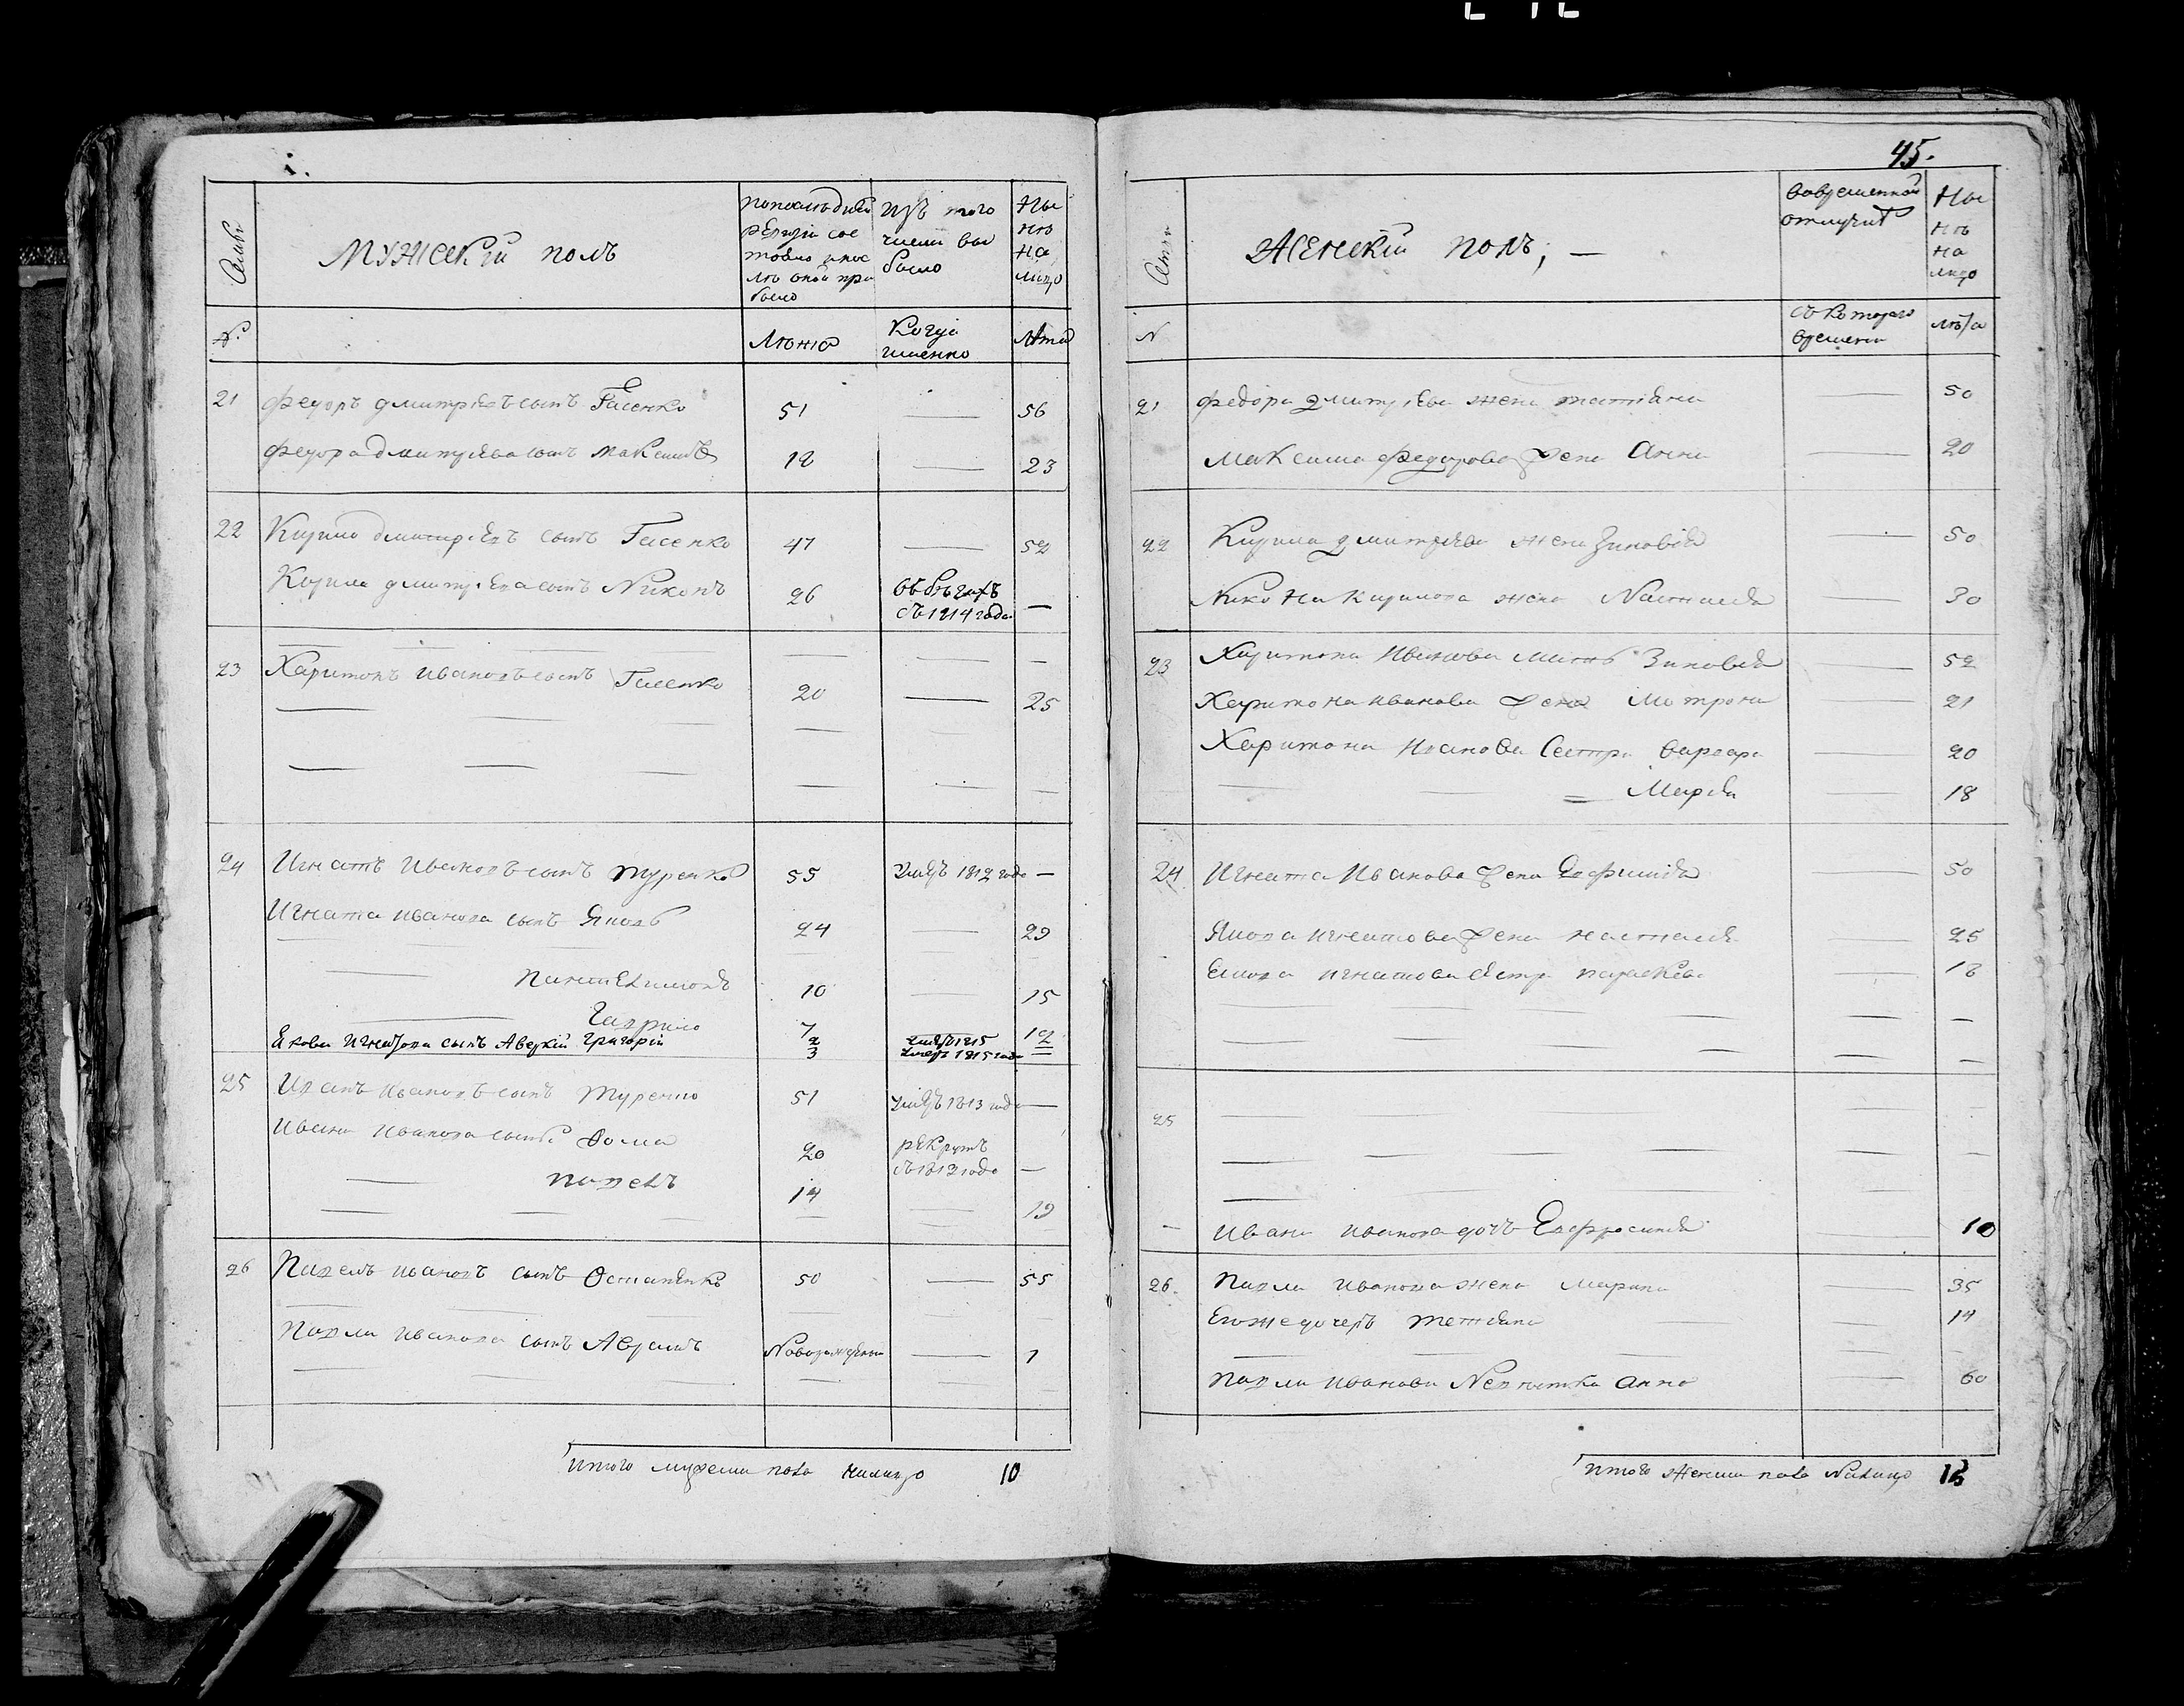 45.
Семьи
Мужескій полъ
по последней
ревизіи сос
тояло и пос
ле оной при
было
Изъ того
числа вы
было
Ны
не
на
лицо
№
Лета
Когда
именно
Лета
21 Федоръ дмитріевъ сынъ Гасенко 51 — 56
Федора дмитріева сынъ Максимъ 18 — 23
22 Кирило дмитріевъ сынъ Гасенко 47 — 52
Кирила дмитріева сынъ Никонъ 26 въ бегахъ
съ 1814 года —
23 Харитонъ Ивановъ сынъ Гасенко 20 — 25
24 Игнатъ Ивановъ сынъ Туренко 55 умеръ 1812 года —
Игната Иванова сынъ Яковъ 24 — 29
Пантелимонъ 10 — 15
Гаврило 7 12
Якова Игнатова сынъ Аверкій 2 умеръ 1815 —
Григорій 3 умеръ 1815 года —
25 Иванъ Ивановъ сынъ Туренко 51 умеръ 1813 года —
Ивана Иванова сынъ Фома 20 рекрутъ
съ 1812 года —
Павелъ 14 — 19
26 Павелъ Ивановъ сынъ Остапенко 50 — 55
Павла Иванова сынъ Аврамъ Новорожденъ — 1
Итого мужеска пола налицо 10
Семьи
Женскій полъ; —
Во временной
отлучке
Ны
не
на
лицо
N
Съ котораго
времени
лета
21 Федора дмитріева жена татіяна — 50
Максима Федорова жена Анна — 20
22 Кирила дмитріева жена Зиновія — 50
Никона Кирилова жена Настасія — 30
23 Харитона Иванова мать Зиновія — 52
Харитона Иванова жена Мотрона — 21
Харитона Иванова Сестра варвара — 20
= Марія — 18
24 Игната Иванова жена Евфимія — 50
Якова Игнатова жена настасія — 25
Якова Игнатова сестра параскева — 18
25
Ивана Иванова дочь Евфросинія — 10
26. Павла Иванова жена Марина — 35
Егоже дочерь Татіяна — 14
Павла Иванова Невестка Анна — 60
Итого женска пола Налицо 18